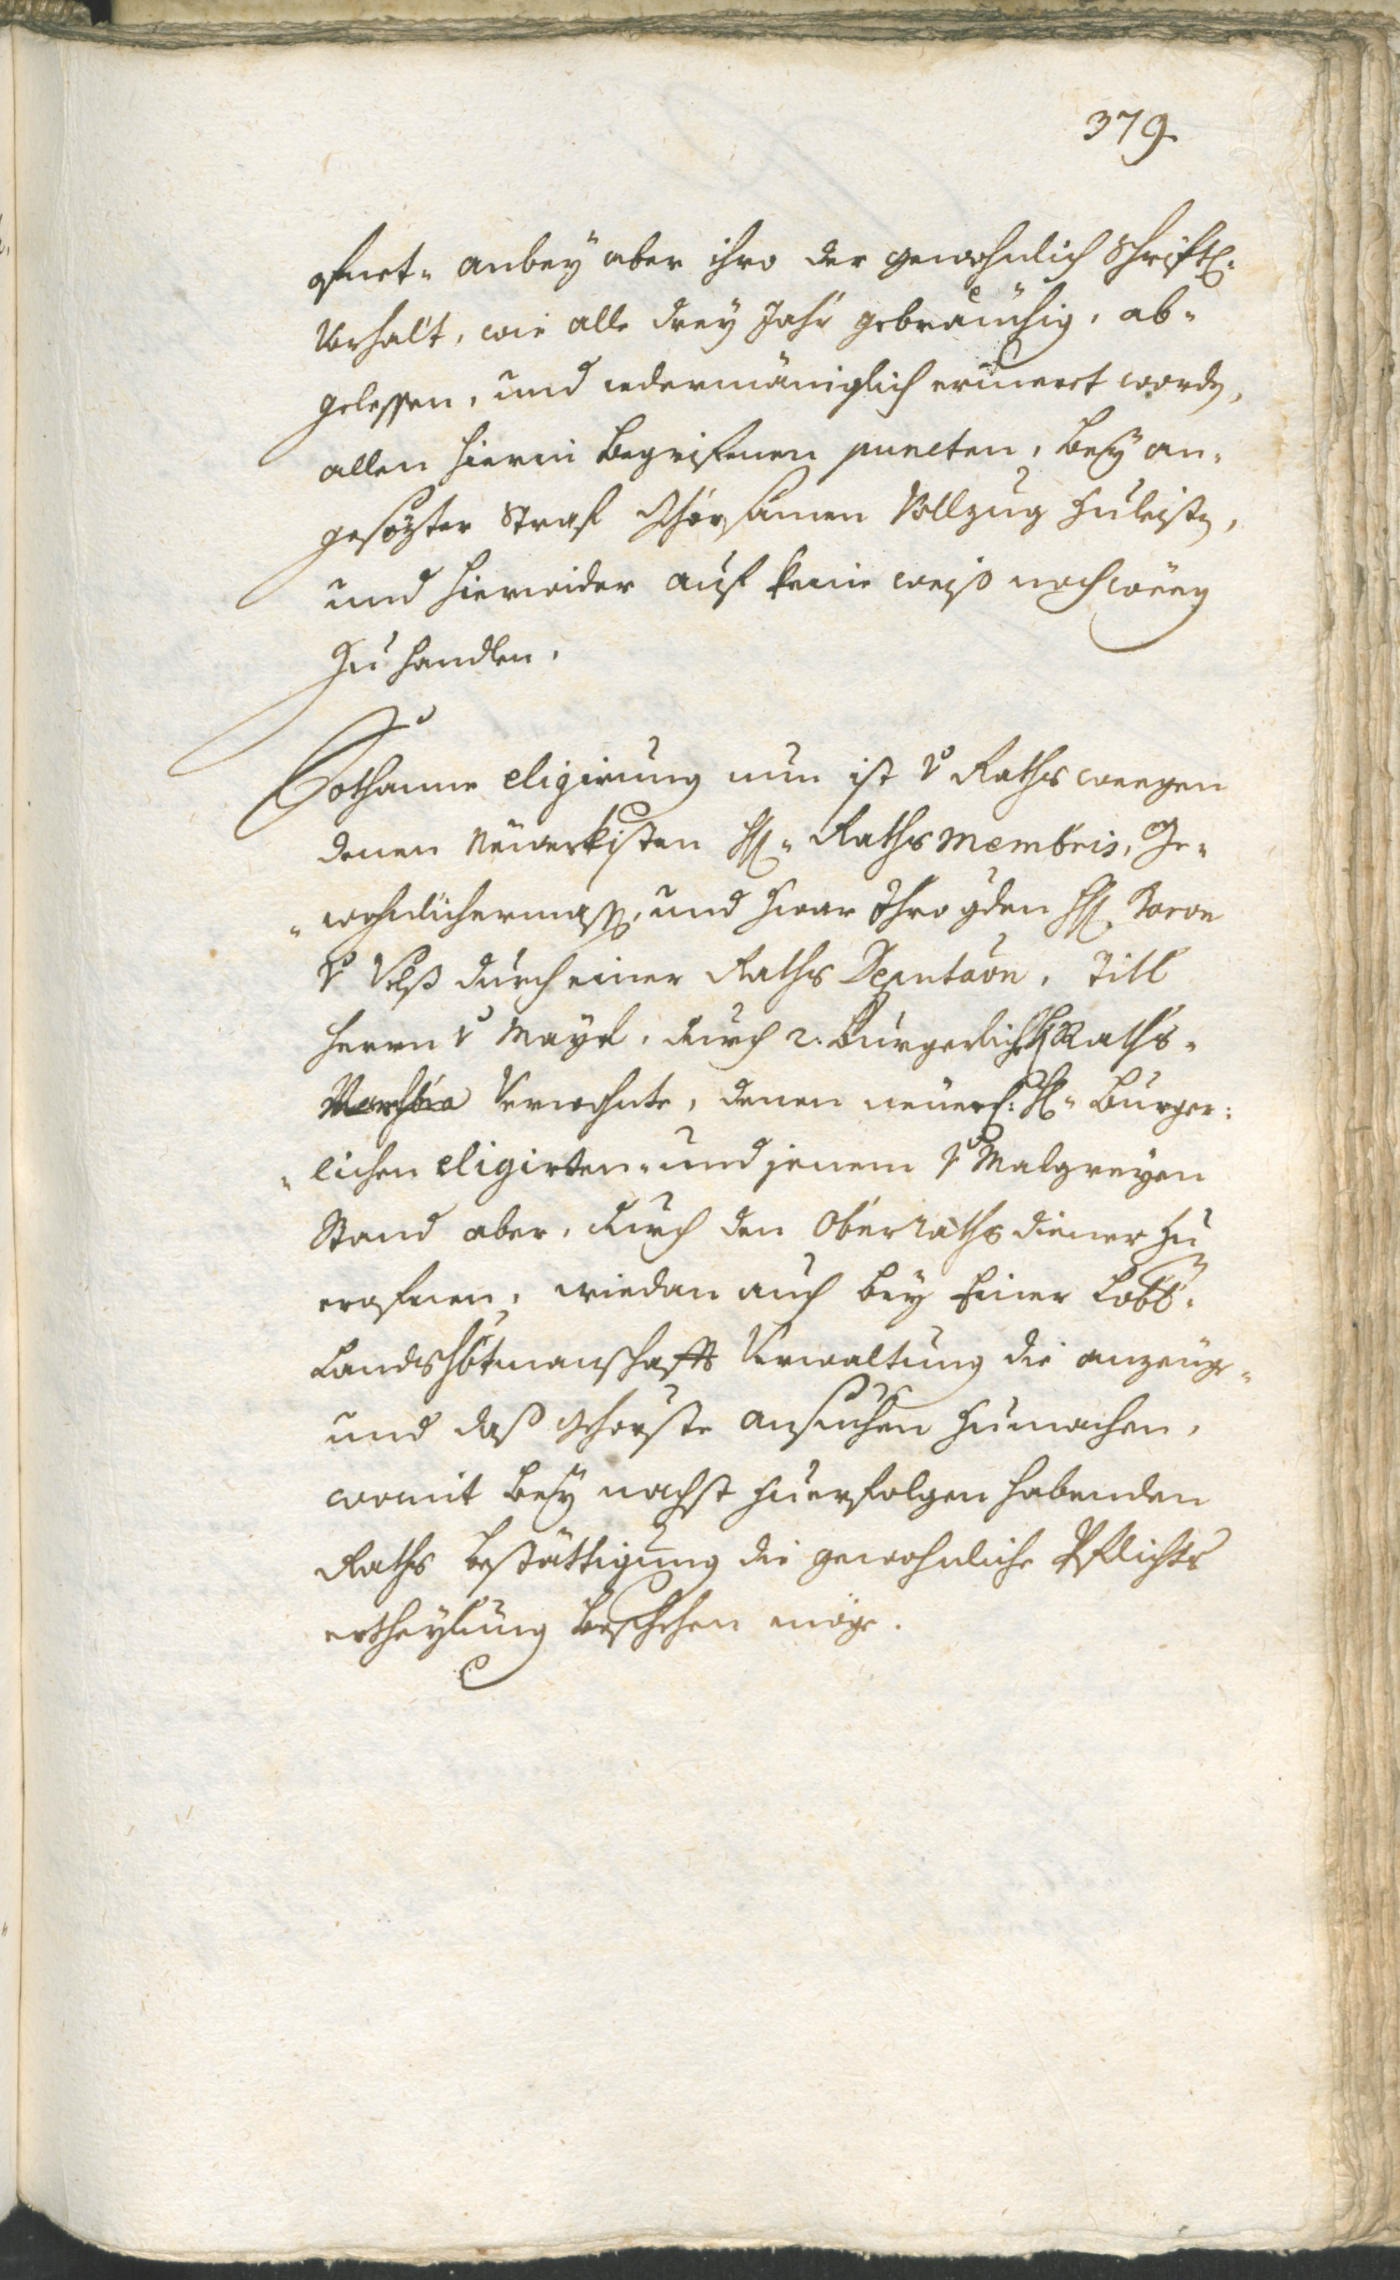 379.
ofnet- anbey aber ihro der gewohnlich Schriftl:
Vorhalt, wie alle drey Jahr gebräuchig, ab-
gelessen, und iedermäniglich erinnert wordn,
allen hierin begriffenen puncten, bey an-
gesözter Straf ghorsamen Vollzug zuleistn,
und hierwider auf keine weiß noch weeg
zu handlen.
Sothanne eligirung nun ist v Raths weegen
denen Neüerkisten HH: Raths Membris, Ge-
wohnlichermassn, und zwar Ihro gden HH: Baron
v Velß durch einer Raths Deputaon, Titl
Herrn v Mayrl, durch 2. Burgerliche Raths-
Verwohnte, denen neüerk: HH: Burger-
lichen eligirten- und jenem v Malgreyen
Stand aber, durch den Oberrathsdiener zu
erofnen, wiedan auch bey Einer Lobl:
Landshbtmanschaffts Verwaltung die anzeüge-
und daß ghorste ansuchen zumachen,
womit bey nachst zuerfolgen habenden
Raths bestättigung die gewohnliche Pflichts
ertheylung beschehen möge.